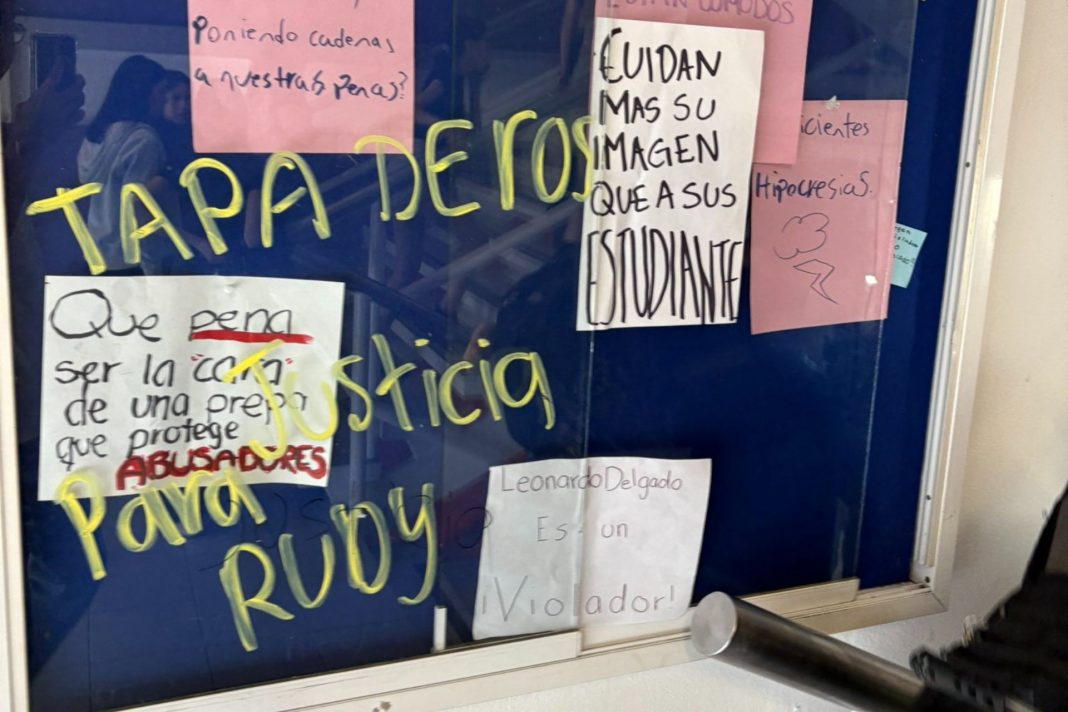 Poniendo cadenas
a nuestras penas?
ESTAN COMODOS
CUIDAN
MAS SU
IMAGEN
QUE A SUS
ESTUDIANTE
icientes
Hipocresias.
TAPADEROS
Que pena
ser la "cara"
de una prepa
que protege
ABUSADORES
Justicia
Para
RUDY
Leonardo Delgado
Es un
¡Violador!